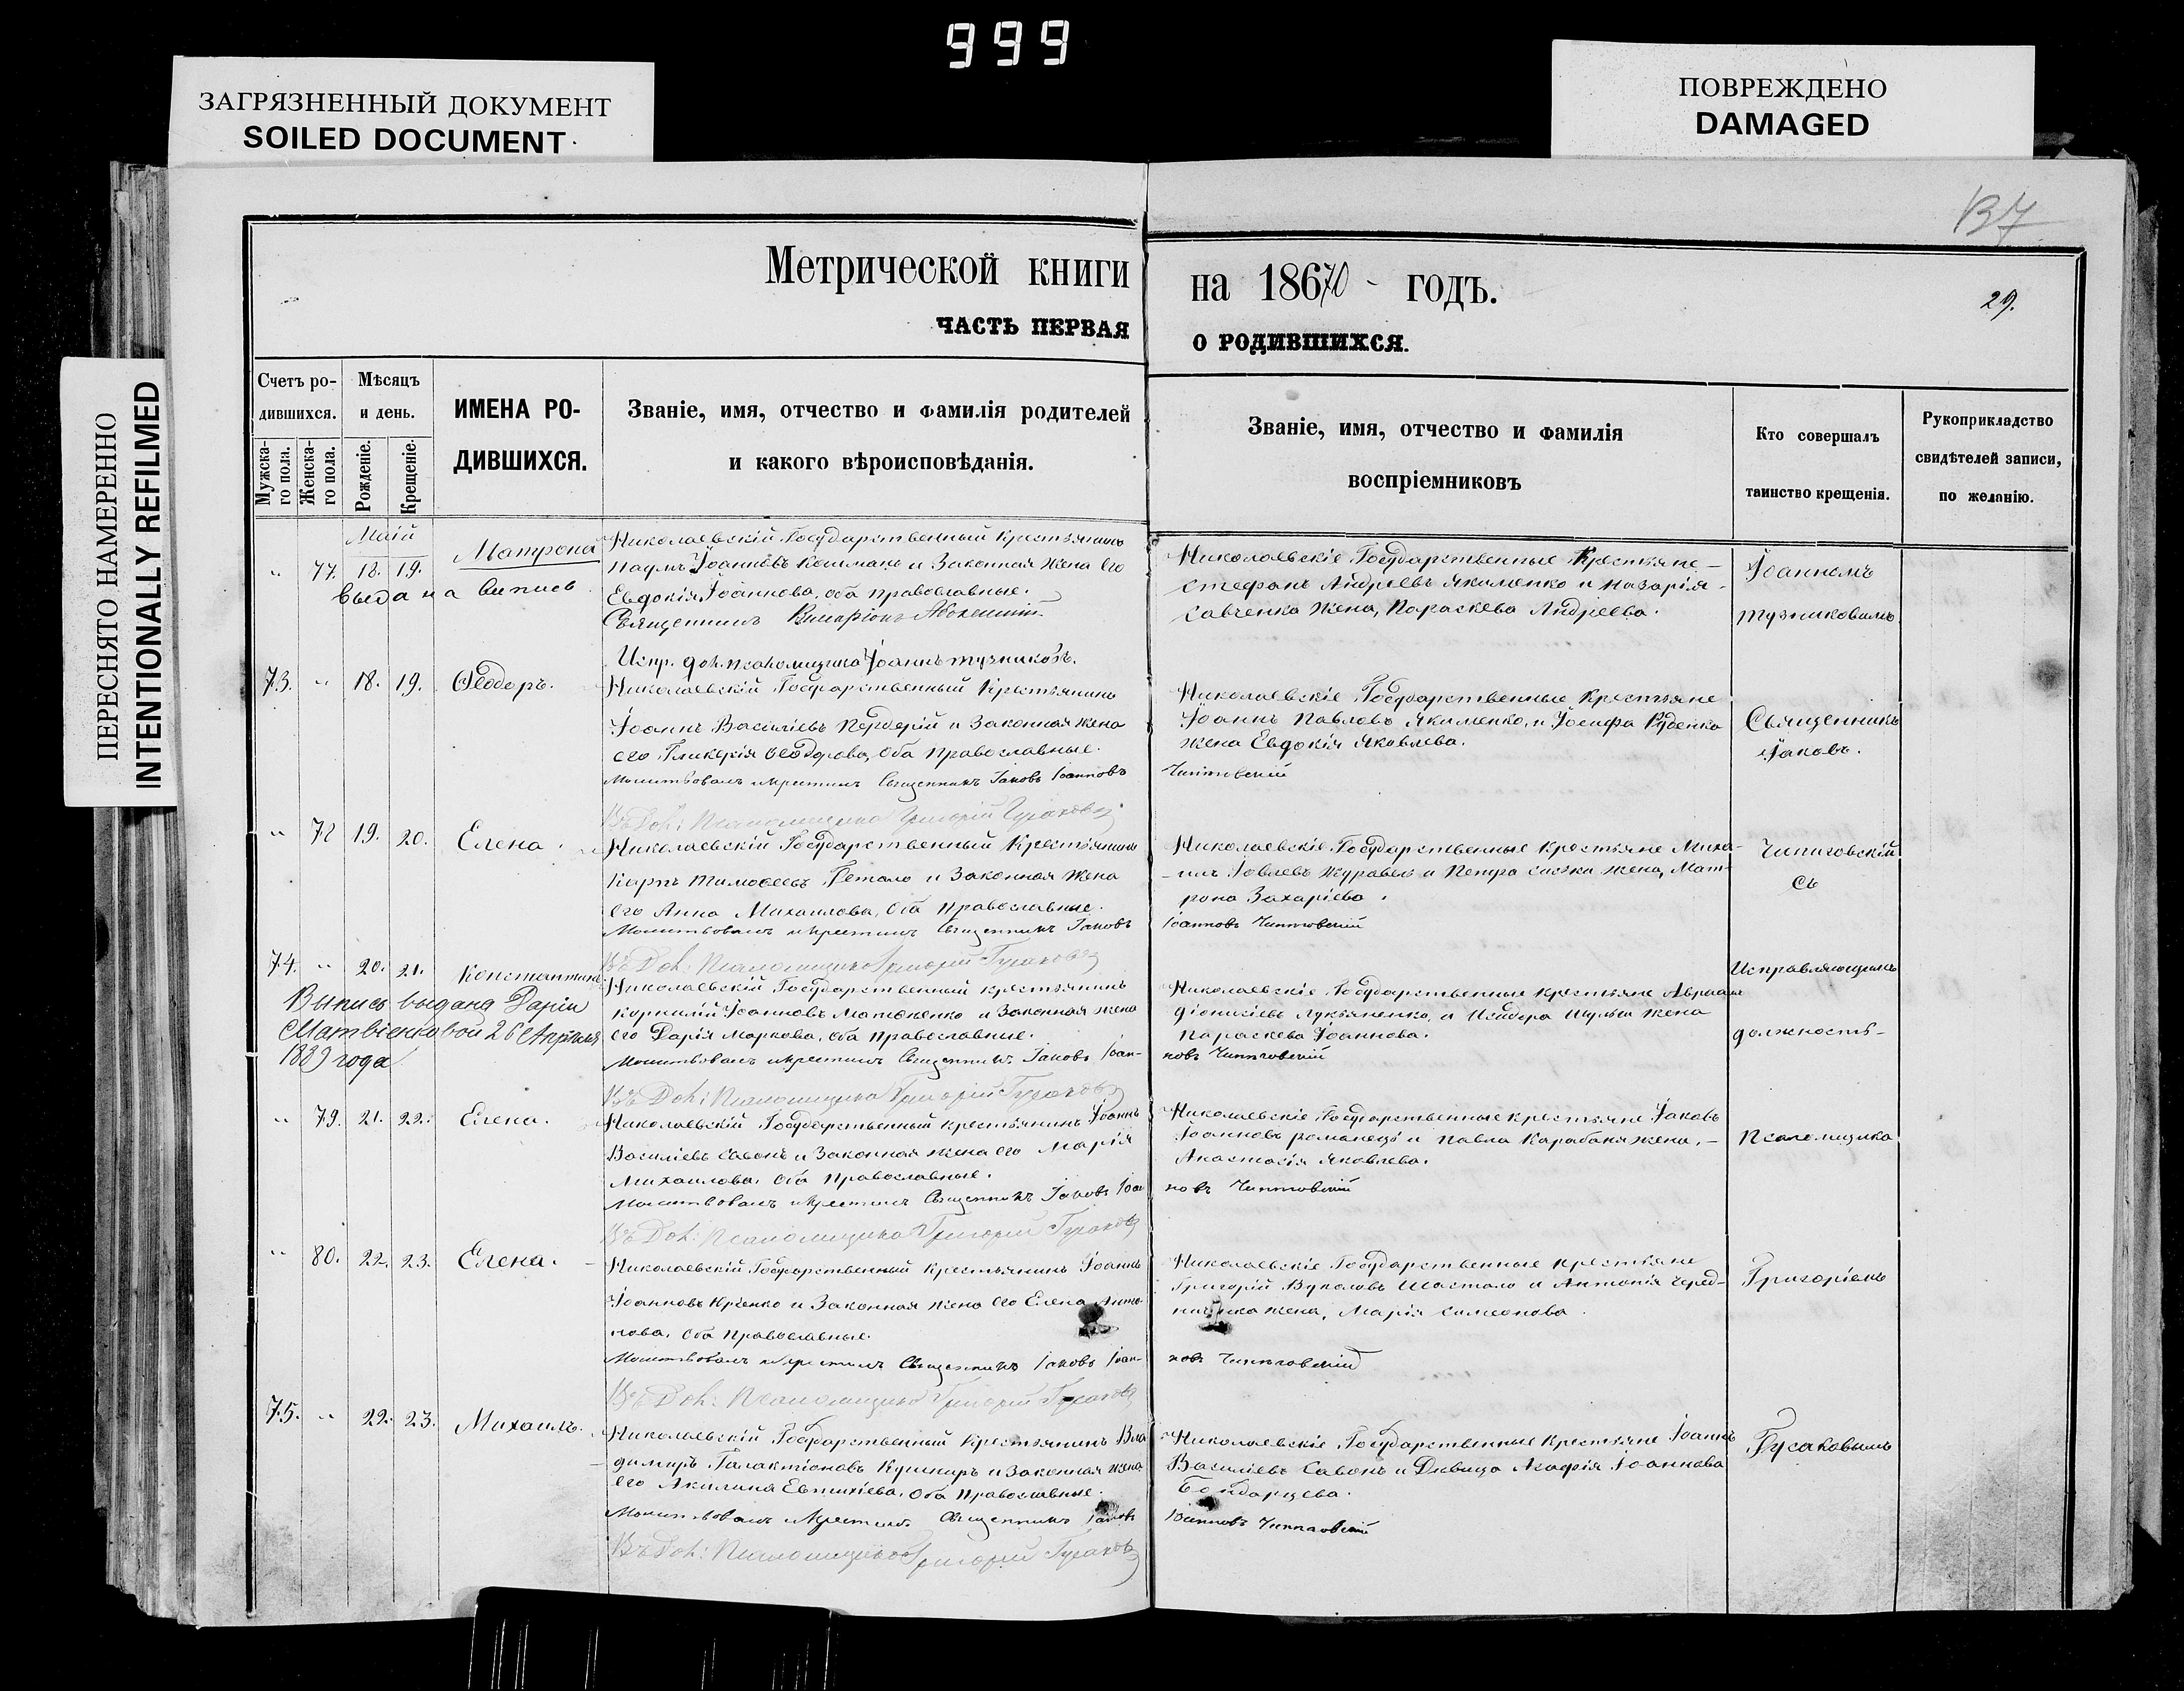 999
ЗАГРЯЗНЕННЫЙ ДОКУМЕНТ
SOILED DOCUMENT
ПОВРЕЖДЕНО
DAMAGED
ПЕРЕСНЯТО НАМЕРЕННО
INTENTIONALLY REFILMED
137
Метрической книги на 18670 годъ.
29.
ЧАСТЬ ПЕРВАЯ О РОДИВШИХСЯ.
Счетъ ро-
дившихся.
Мужска-
го пола.
Женска-
го пола.
Мѣсяцъ
и день.
Рожденіе.
Крещеніе.
ИМЕНА РО-
ДИВШИХСЯ.
Званіе, имя, отчество и фамилія родителей
и какого вѣроисповѣданія.
Званіе, имя, отчество и фамилія
воспріемниковъ
Кто совершалъ
таинство крещенія.
Рукоприкладство
свидѣтелей записи,
по желанію.
Маій
77. 18. 19. Матрона
выдана выпись
Николаевскій Государственный Крестьянинъ
Наумъ Іоанновъ и Законная жена его
Евдокія Іоаннова, оба православные.
Священникъ
Николаевскіе Государственные Крестьяне
Стефанъ Андреевъ Якименко и Назарія
Савченка жена, Параскева Андреева.
Іоанномъ
Тузниковымъ
Испр. дол. псаломщика Іоаннъ Тузниковъ.
73. " 18. 19. Ѳеодоръ.
Николаевскій Государственный Крестьянинъ
Іоаннъ Василіевъ и Законная жена
его Гликерія Ѳеодорова, оба православные.
Молитвовалъ и крестилъ Священникъ Іаковъ Іоанновъ
Николаевскіе Государственные Крестьяне
Іоаннъ Павловъ Якименко, и Іосифа Руденка
жена Евдокія Яковлева.
Чипиговскій
Священникъ
Іаковъ.
Въ дол: Псаломщика Григорій Гусаковъ
" 78 19. 20. Елена.
Николаевскій Государственный Крестьянинъ
Карпъ Тимоѳеевъ и Законная жена
его Анна Михаилова, оба православные.
Молитвовалъ и крестилъ Священникъ Іаковъ
Николаевскіе Государственные Крестьяне Миха-
илъ Іовлевъ Журавель и Петра жена, Мат-
рона Захаріева.
Іоанновъ Чипиговскій
Чипиговскій
Съ
Въ Дол: Псаломщика Григорій Гусаковъ
74. " 20. 21. Константинъ
Выпись выдана Даріи
Матвіенковой 26 Апрѣля
1889 года
Николаевскій Государственный крестьянинъ
Корнилій Іоанновъ и Законная жена
его Дарія Маркова, оба православные.
Молитвовалъ и крестилъ Священникъ Іаковъ Іоан-
Николаевскіе Государственные крестьяне Авраамъ
Діонисіевъ Лукьяненко, и Исидора Шульги жена
Параскева Іоаннова.
новъ Чипиговскій
Исправляющимъ
должность
Въ Дол: Псаломщика Григорій Гусаковъ
" 79. 21. 22. Елена.
Николаевскій Государственный крестьянинъ Іоаннъ
Василіевъ Савонъ и Законная жена его Марія
Михаилова, оба православные.
Молитвовалъ и крестилъ Священникъ Іаковъ Іоан
Николаевскіе Государственные крестьяне Іаковъ
Іоанновъ Романецъ и Павла Карабаня жена,
Анастасія Яковлева.
новъ Чипиговскій
Псаломщика
Въ Дол: Псаломщика Григорій Гусаковъ
" 80. 22. 23. Елена.
Николаевскій Государственный крестьянинъ Іоаннъ
Іоанновъ и Законная жена его Елена Анто-
нова, оба православные.
Молитвовалъ и крестилъ Священникъ Іаковъ Іоан-
Николаевскіе Государственные крестьяне
Григорій Вуколовъ Шастало и Антонія Черед-
ниченка жена, Марія Симеонова.
новъ Чипиговскій
Григоріемъ
Въ Дол: Псаломщика Григорій Гусаковъ
75. " 22. 23. Михаилъ.
Николаевскій Государственный Крестьянинъ Вла-
димиръ Галактіоновъ Кушниръ и Законная жена
его Акилина Евтихіева, оба православные.
Молитвовалъ и крестилъ Священникъ Іаковъ
Николаевскіе Государственные Крестьяне Іоаннъ
Василіевъ Савонъ и Дѣвица Агафія Іоаннова
Бондарцева.
Іоанновъ Чипиговскій
Гусаковымъ
Въ Дол: Псаломщика Григорій Гусаковъ